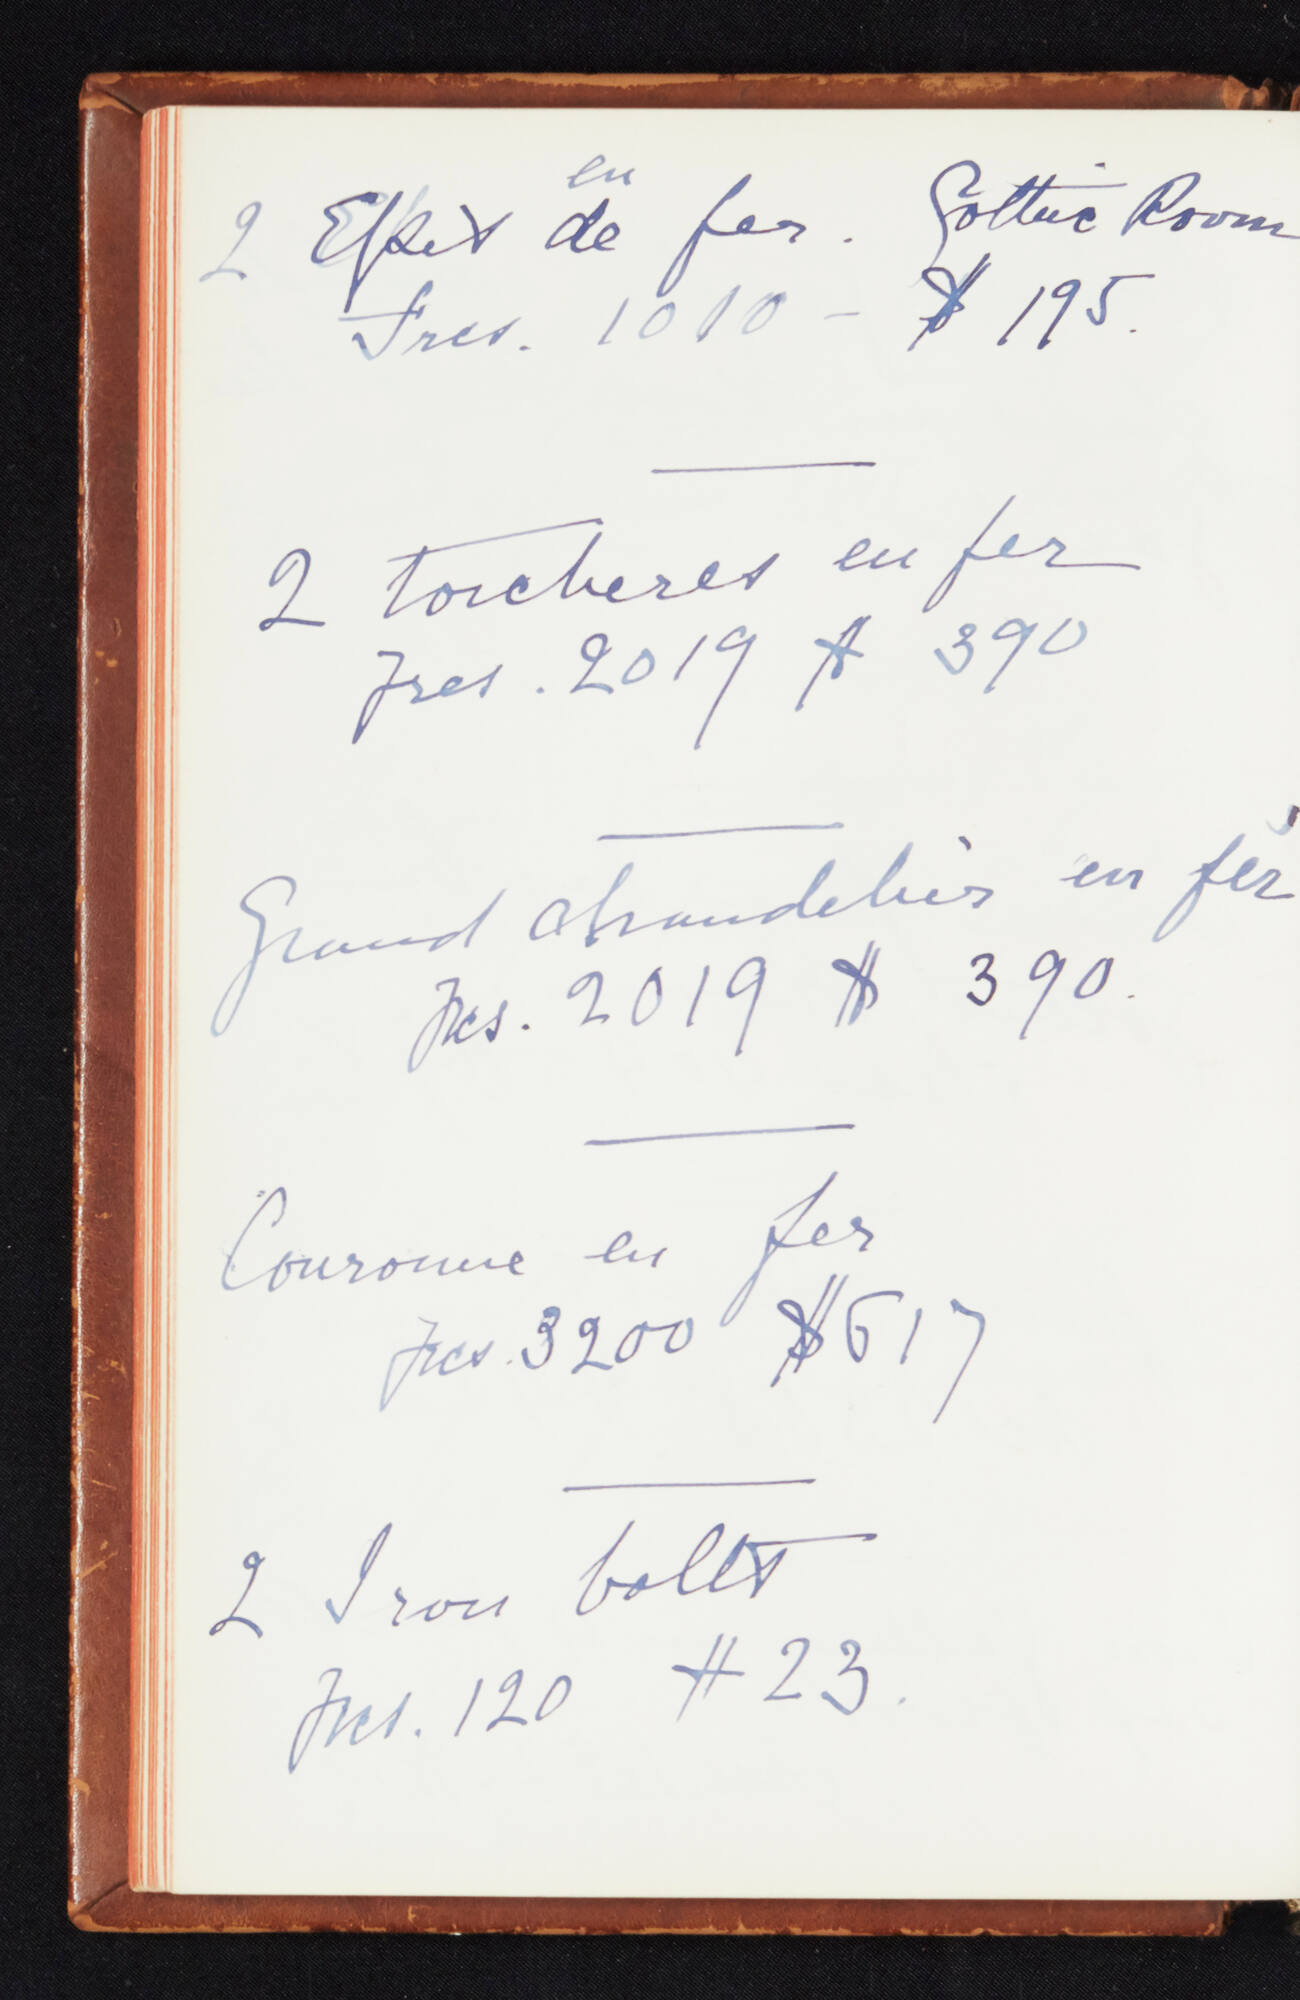 en
2 Epis de fer. Gothic Room
Frcs. 1010 - $ 195.
2 torcheres en fer
Frcs. 2019 $ 390
Grand chandelier en fer
Frcs. 2019 $ 390.
Couronne en fer
Frcs. 3200 $ 617
2 Iron bolts
Frcs. 120 $ 23.